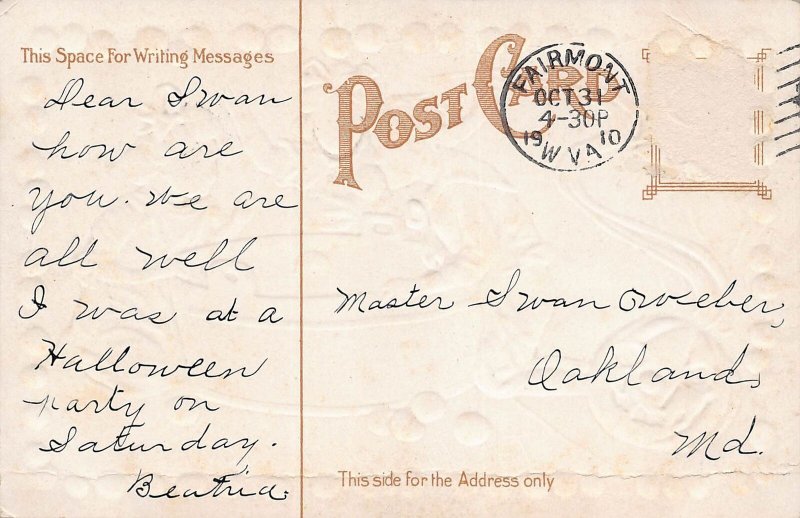 This Space For Writing Messages
Dear Swan
how are
you. We are
all well
I was at a
Halloween
party on
Saturday.
Beatrice
POST CARD
FAIRMONT
OCT 31
4-30P
1910
W VA
Master Swan Weber,
Oakland,
Md.
This side for the Address only